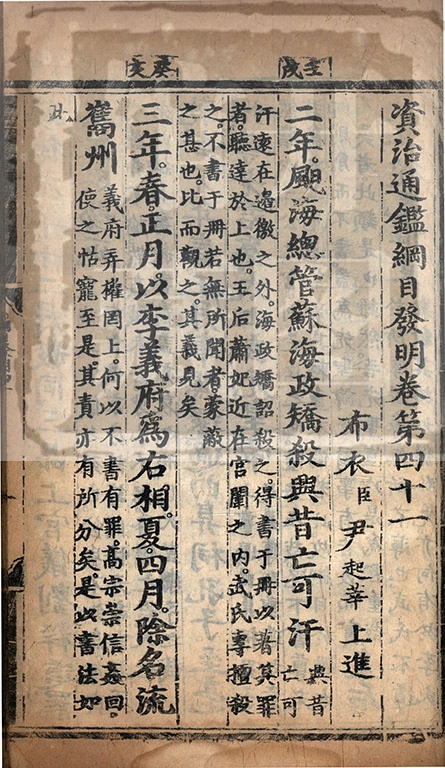 壬戌
癸亥
資治通鑑綱目發明卷第四十一
布衣臣尹起莘上進
二年。颶海總管蘇海政矯殺興昔亡可汗
興昔
亡可
汗遠在邊徼之外。海政矯詔殺之。得書于冊以著其罪
者。聽達於上也。王后蕭妃近在宮闈之内。武氏專擅殺
之。不書于冊若無所聞者。蒙蔽
之甚也。比而觀之。其義見矣
三年。春。正月。以李義府爲右相。夏。四月。除名流
巂州
義府弄權罔上。何以不書有罪。高宗崇信姦回。
使之怙寵至是。其責亦有所分矣。是以書法如
此